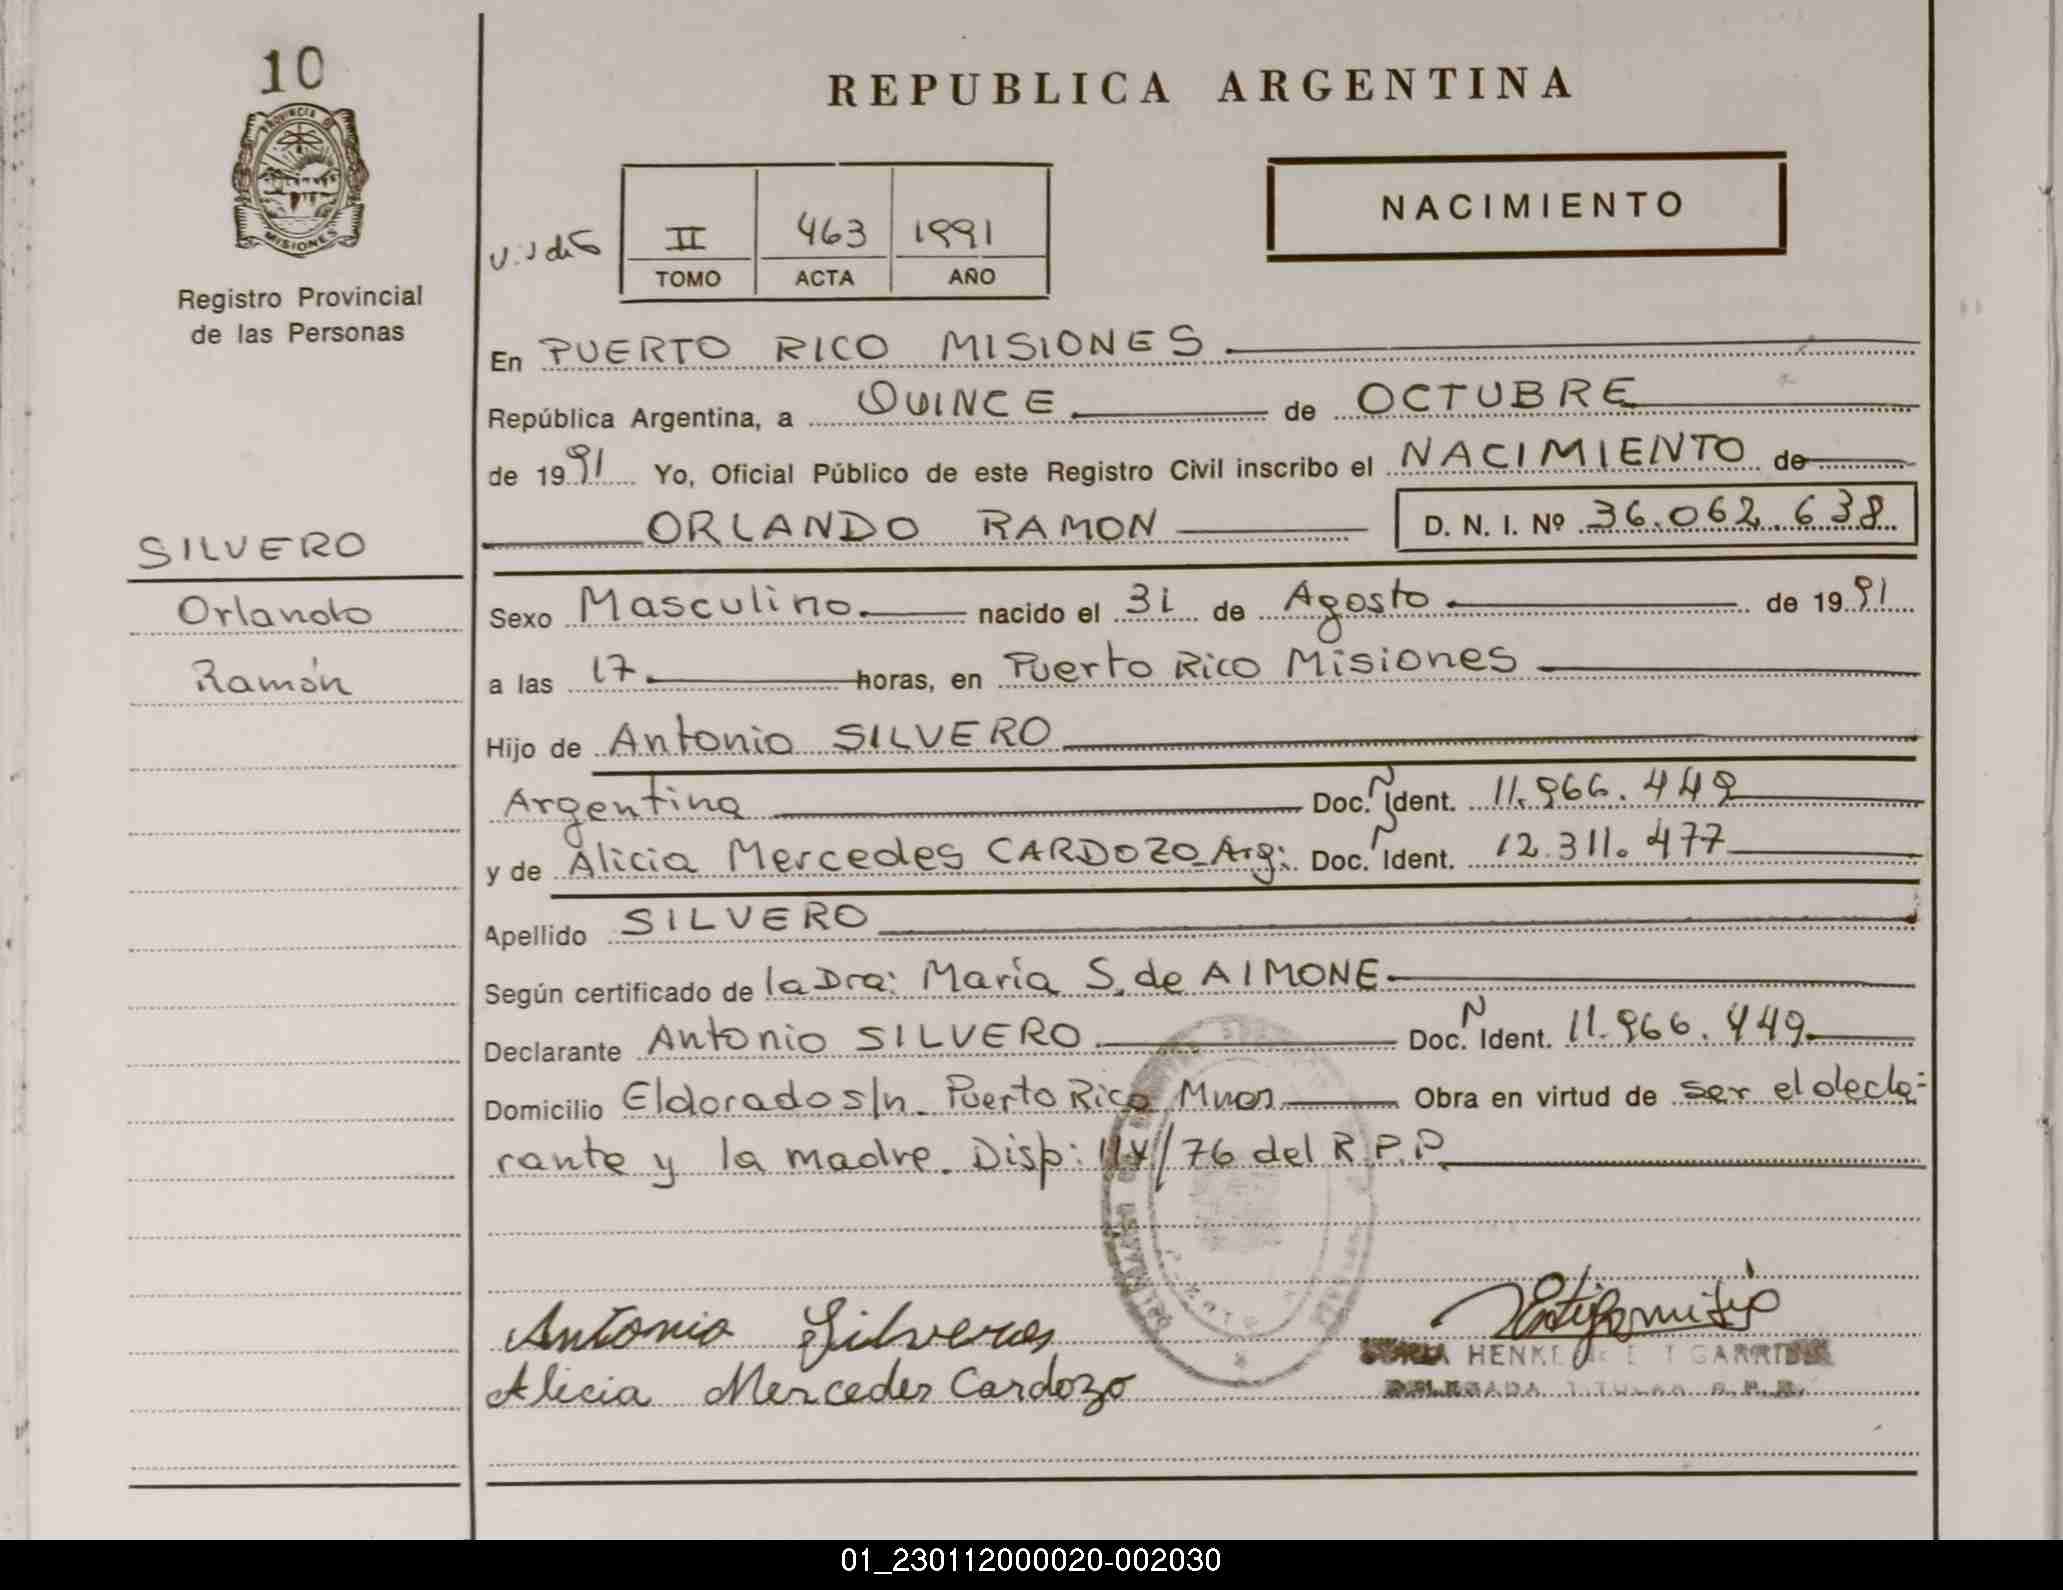 10
PROVINCIA DE
MISIONES
Registro Provincial
de las Personas
SILVERO
Orlando
Ramón
REPUBLICA ARGENTINA
NACIMIENTO
II 463 1991
TOMO ACTA AÑO
En PUERTO RICO MISIONES
República Argentina, a QUINCE de OCTUBRE
de 1991 Yo, Oficial Público de este Registro Civil inscribo el NACIMIENTO de
ORLANDO RAMON D. N. I. Nº 36.062.638
Sexo Masculino. nacido el 31 de Agosto de 1991
a las 17 horas, en Puerto Rico Misiones
Hijo de Antonio SILVERO
Argentina Doc. N Ident. 11.966.449
y de Alicia Mercedes CARDOZO Arg: Doc. N Ident. 12.311.477
Apellido SILVERO
Según certificado de la Dra: María S. de AIMONE
Declarante Antonio SILVERO Doc. N Ident. 11.966.449
Domicilio Eldorado s/n. Puerto Rico Mnes Obra en virtud de ser el decla-
rante y la madre. Disp: /76 del R.P.P.
Antonio Silvero
Alicia Mercedes Cardozo
HENKE GARRIDO
DELEGADA TITULAR R.P.P.
01_230112000020-002030